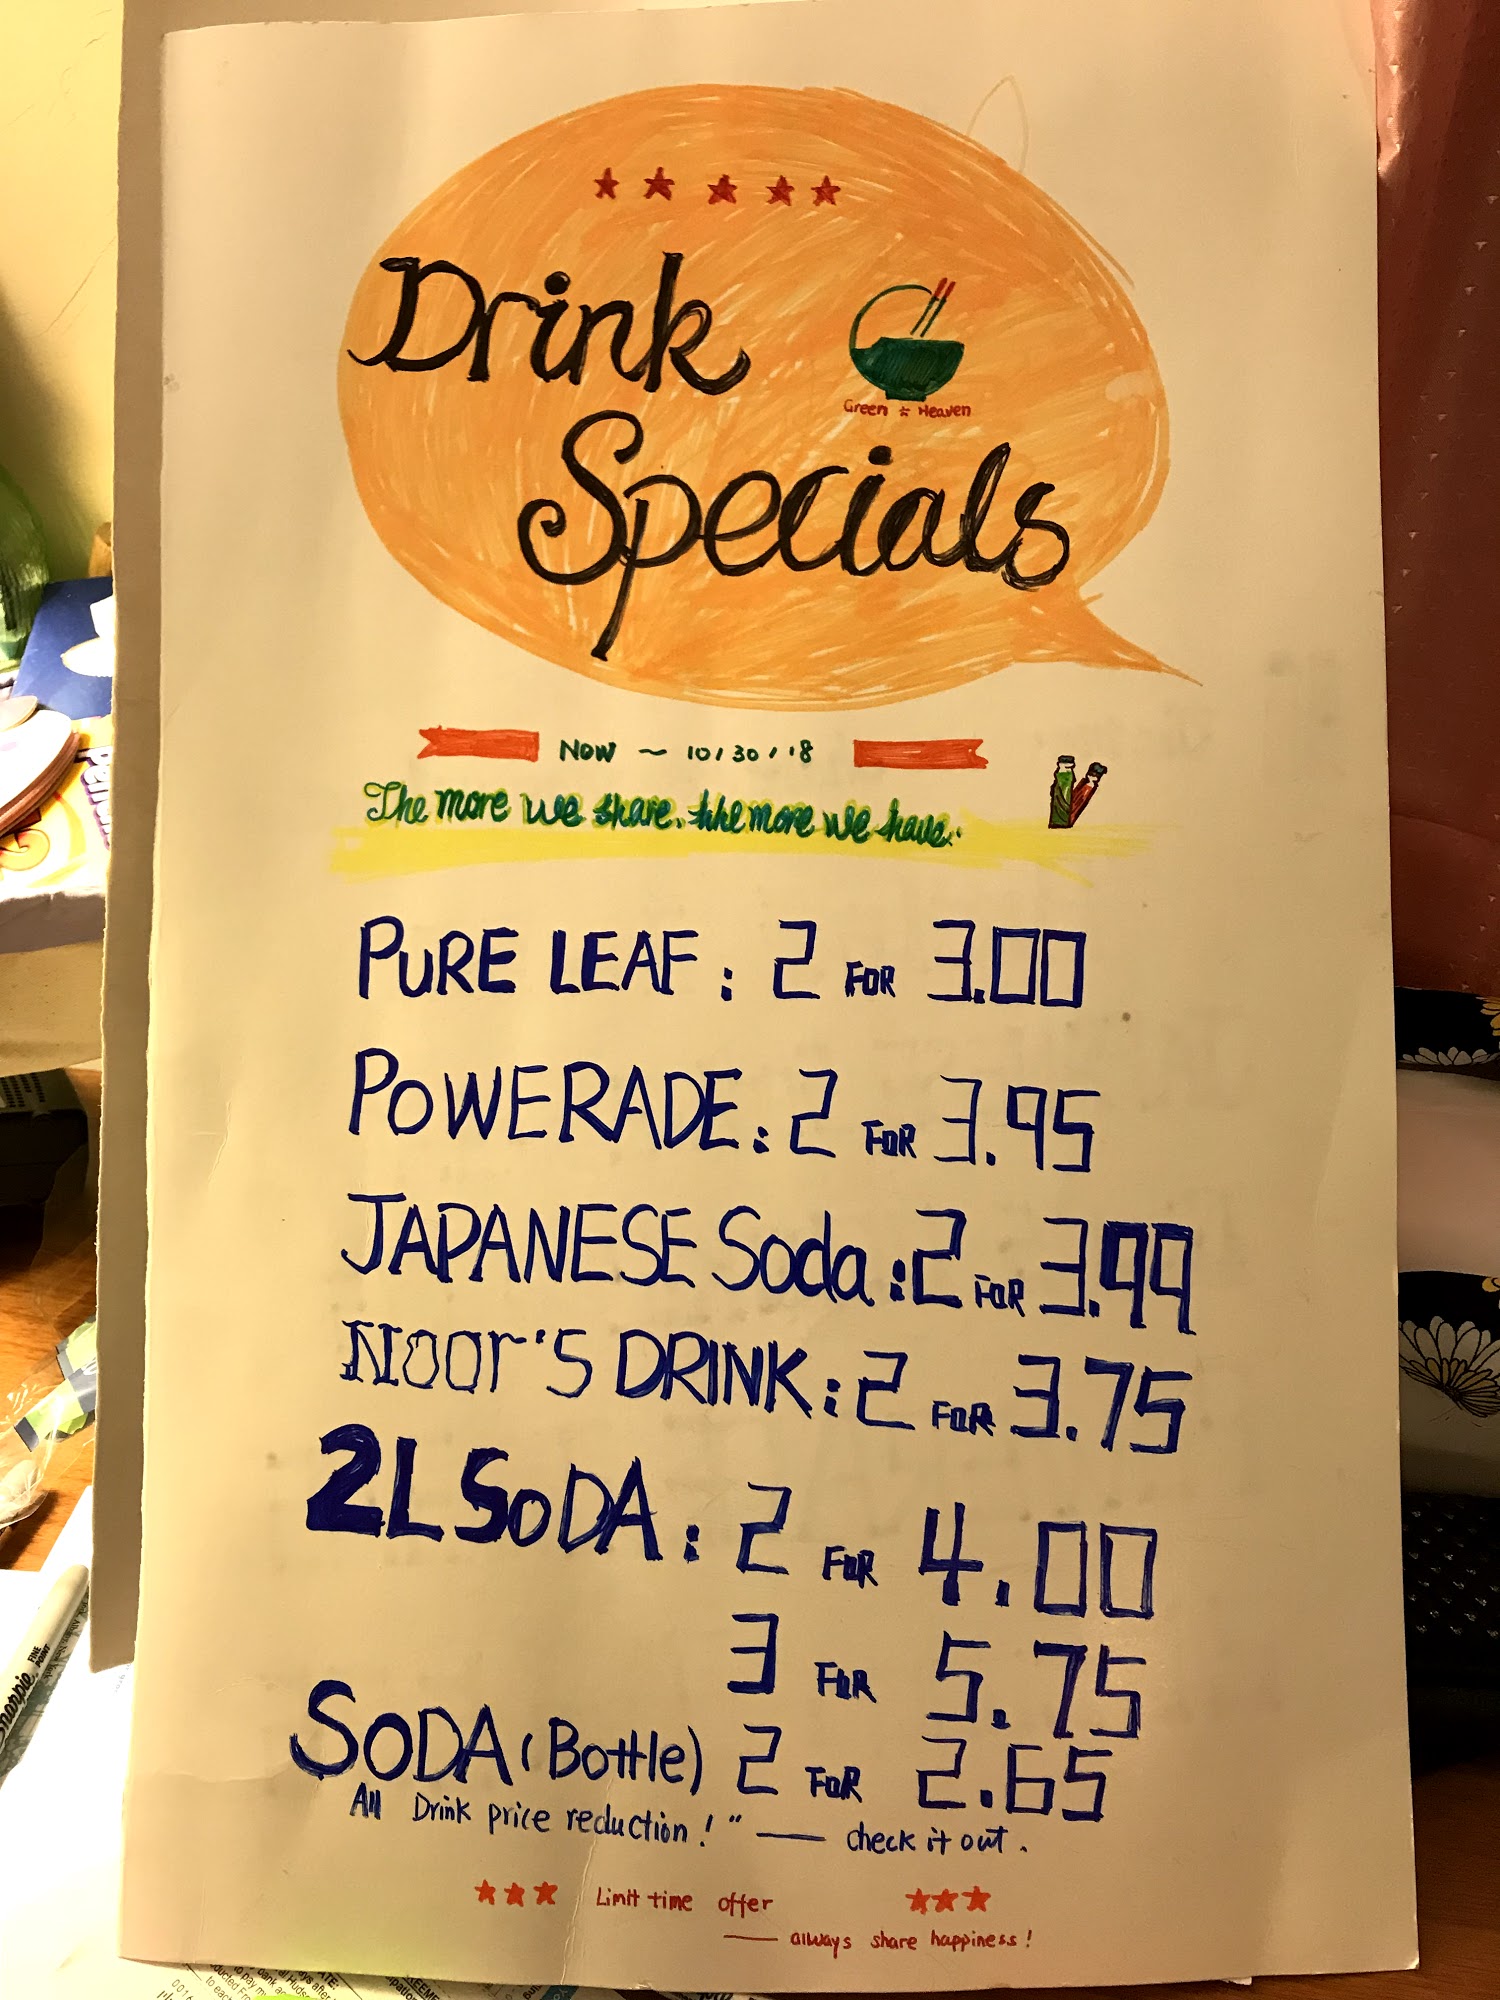 Drink
Green Heaven
Specials
NOW ~ 10/30/18
The more we share, the more we have.
PURE LEAF: 2 FOR 3.00
POWERADE: 2 FOR 3.95
JAPANESE Soda: 2 FOR 3.99
NOOr'S DRINK: 2 FOR 3.75
2L SoDA: 2 FOR 4.00
3 FOR 5.75
SoDA (Bottle) 2 FOR 2.65
All Drink price reduction!" — check it out.
Limit time offer
— always share happiness!
Sharpie
FINE POINT